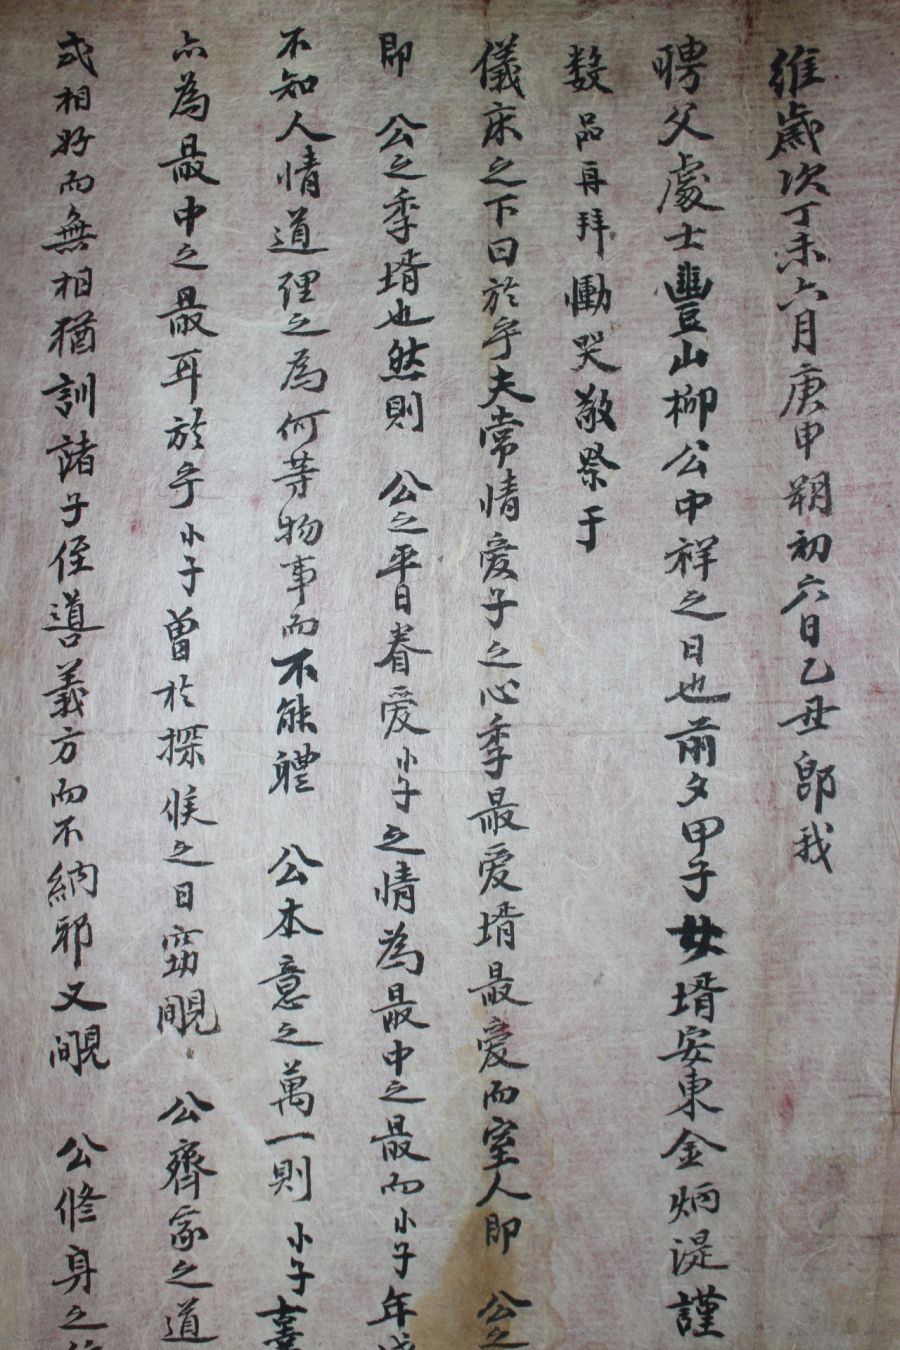 維歲次丁未六月庚申朔初六日乙丑卽我
聘父處士豊山柳公中祥之日也前夕甲子女壻安東金炳湜謹
数品再拜慟哭敬祭于
儀床之下曰於乎夫常情愛子之心季最愛壻最愛而室人卽 公之
卽 公之季壻也然則 公之平日眷愛小子之情為最中之最而小子年
不知人情道理之為何等物事而不能體 公本意之萬一則小子
亦為最中之最耳於乎小子曽於探候之日窃覸 公齊家之道
式相好而無相猶訓諸子侄導義方而不納邪又覸 公修身之